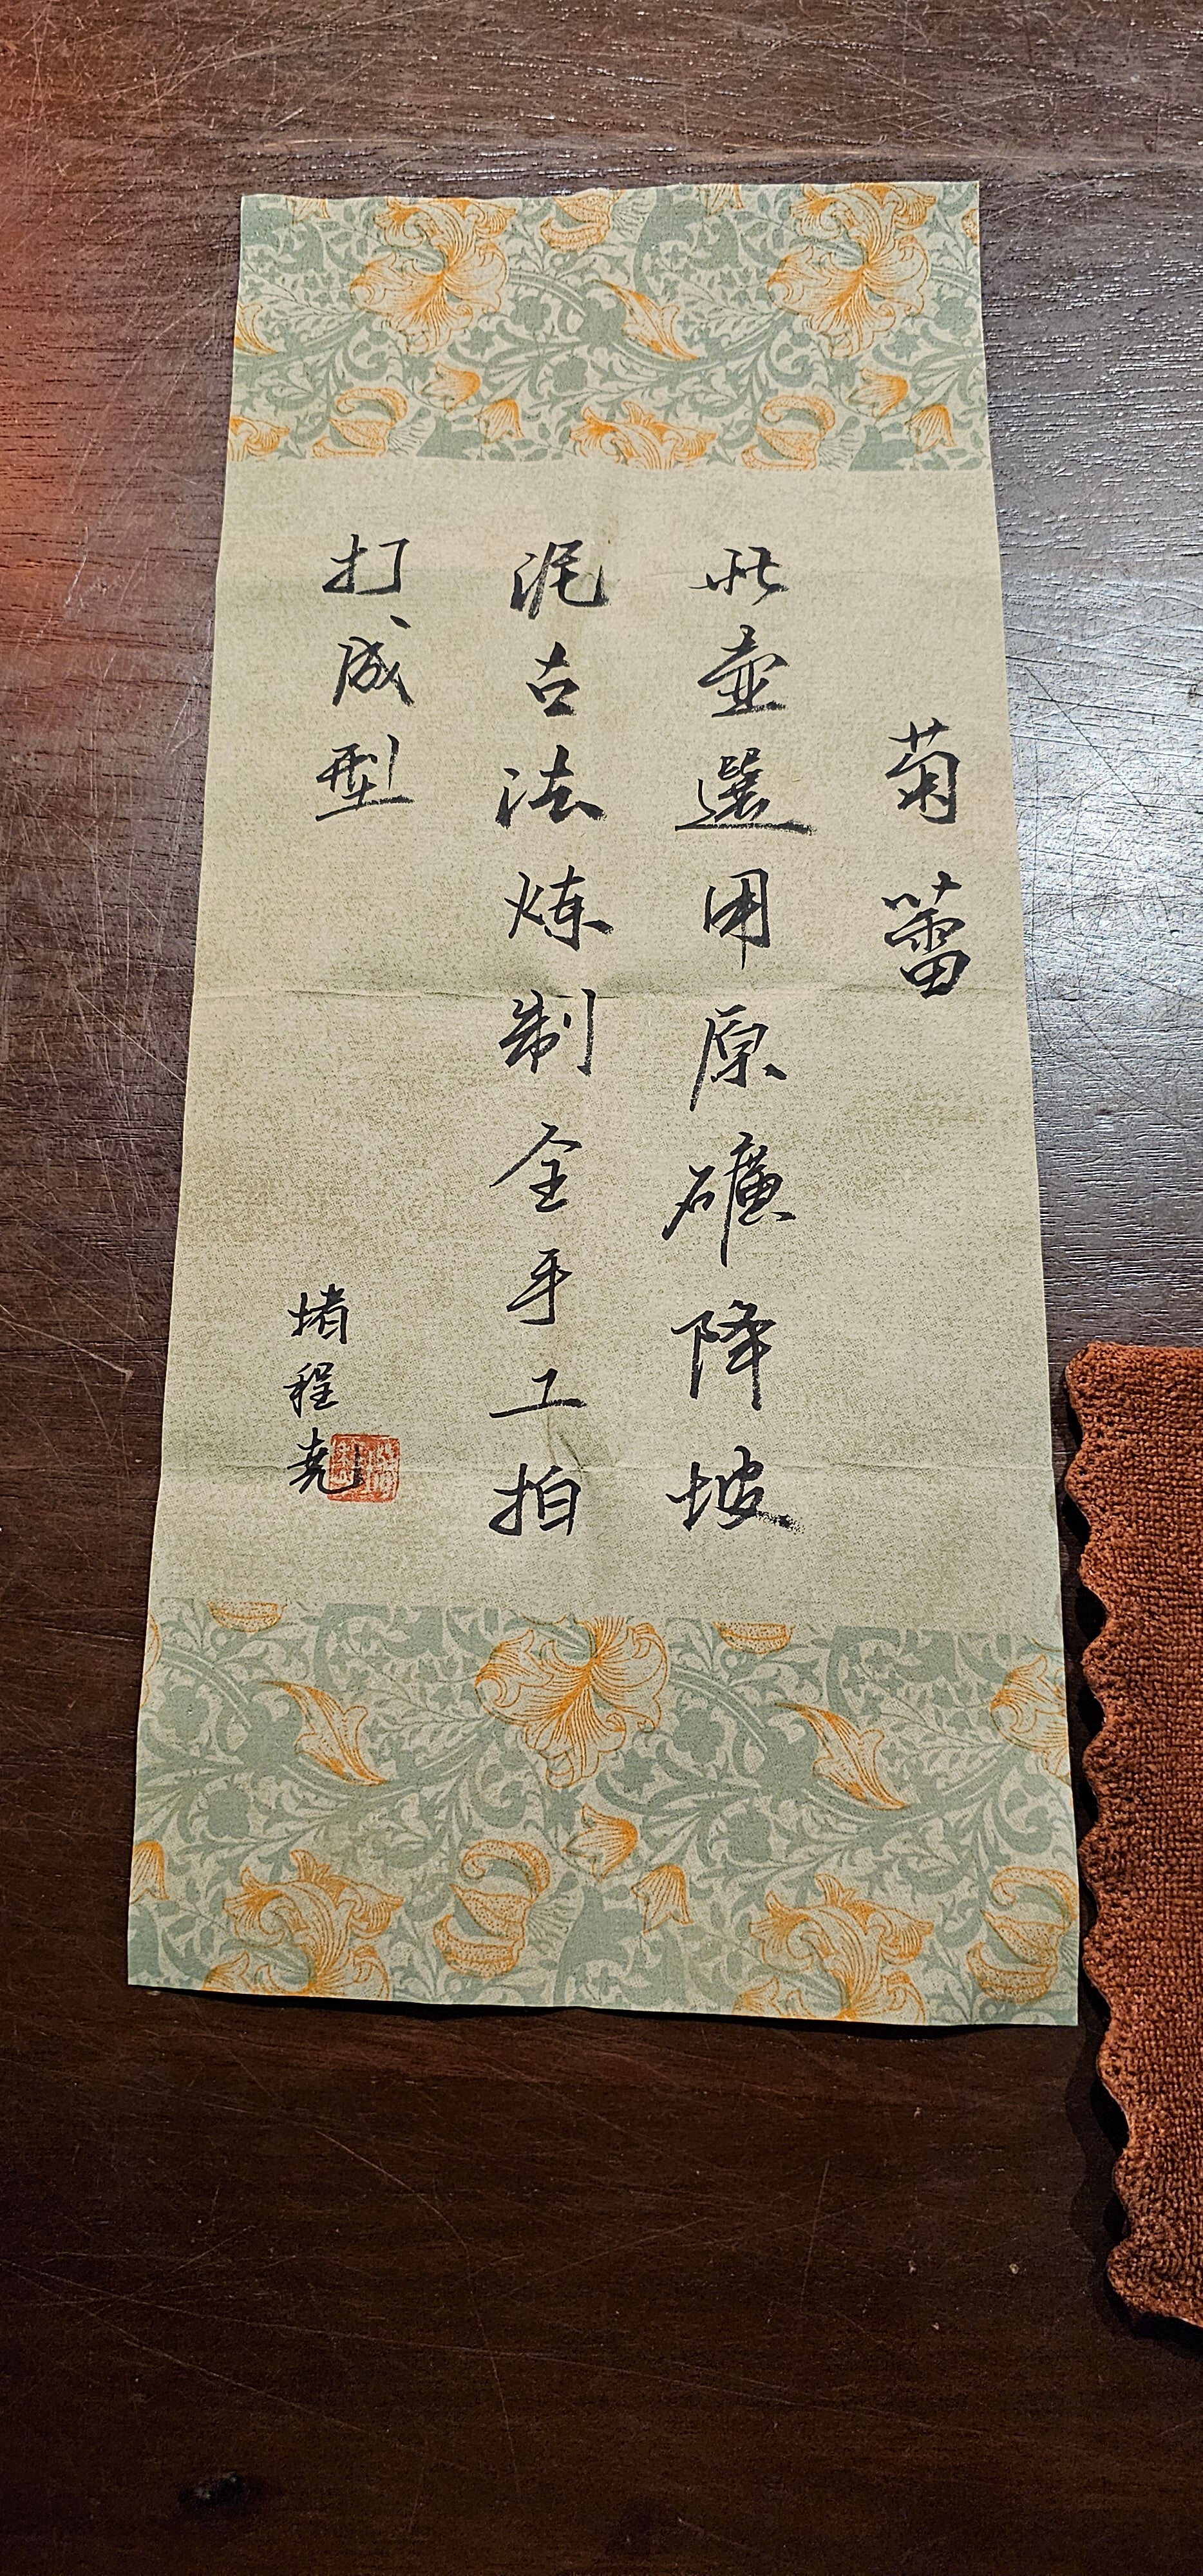 菊蕾
此壶選用原礦降坡
泥古法炼制全手工拍
打成型
堵程尧